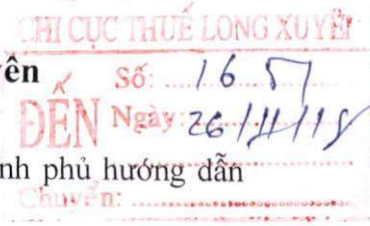 CHI CỤC THUẾ LONG XUYÊN
yên
Số: 16
ĐẾN
Ngày: 26/11/18
nh phủ hướng dẫn
Chuyển: